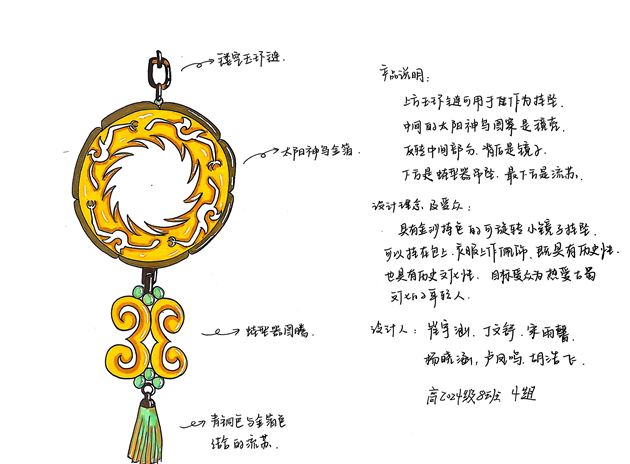 镂空玉环链.
太阳神鸟金箔.
蛙型器图腾.
青铜色与金箔色
结合的流苏.
产品说明:
上方玉环链可用于佳作为挂坠.
中间的太阳神鸟图案是镂空.
旋转中间部分.背后是镜子.
下方是蛙型器吊坠.最下方是流苏.
设计理念及受众:
具有金沙特色的可旋转小镜子挂坠.
可以挂在包上、衣服上作佩饰.既具有历史性.
也具有历史文化性.目标受众为热爱古蜀
文化的年轻人.
设计人:崔宇涵、丁文舒、宋雨馨、
杨晓涵,卢凤鸣、胡浩飞.
高2024级8班 4组